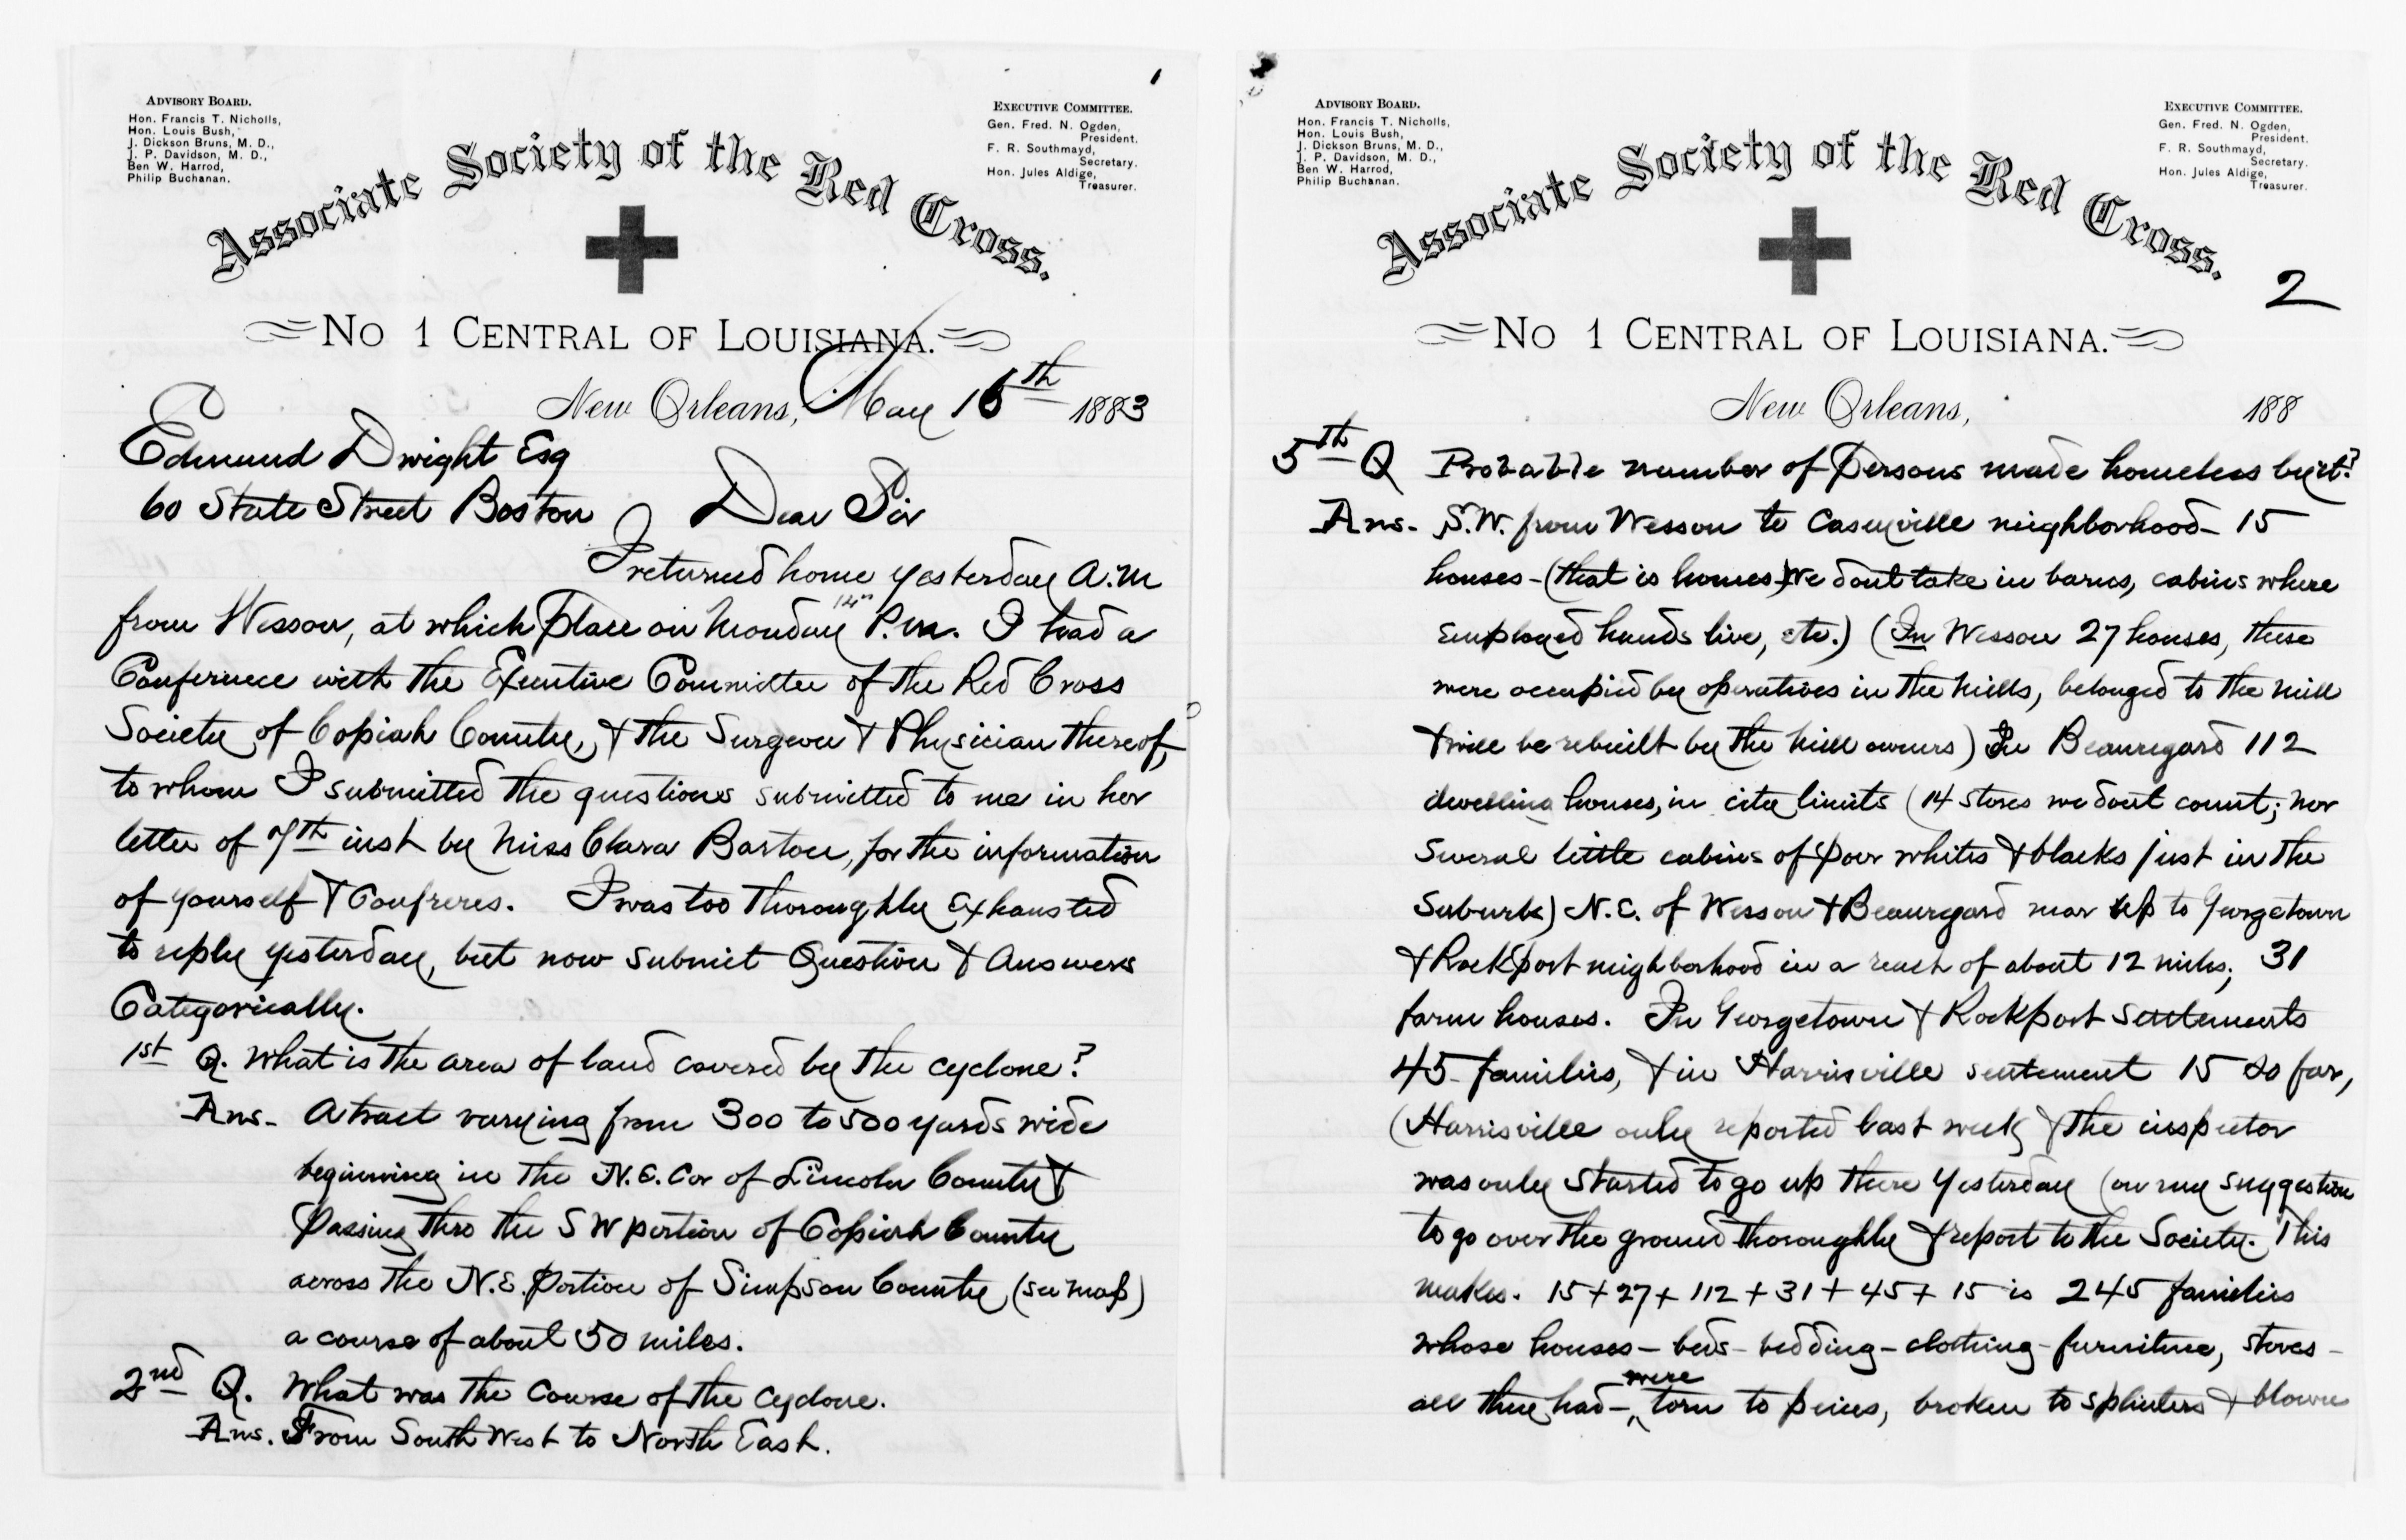 1
ADVISORY BOARD.
Hon. Francis T. Nicholls,
Hon. Louis Bush,
J. Dickson Bruns, M. D.,
J. P. Davidson, M. D.,
Ben W. Harrod,
Philip Buchanan.
EXECUTIVE COMMITTEE.
Gen. Fred. N. Ogden,
President.
F. R. Southmayd,
Secretary.
Hon. Jules Aldige,
Treasurer.
Associate Society of the Red Cross.
NO 1 CENTRAL OF LOUISIANA.
New Orleans, May 16th 1883
Edmund Dwight Esq
60 State Street Boston Dear Sir
I returned home yesterday A.M
from Wesson, at which place on Monday 14" P.M. I had a
Conference with the Exeutive Committee of the Red Cross
Society of Copiah County, & the Surgeon & Physician thereof,
to whom I submitted the questions submitted to me in her
letter of 7th inst by Miss Clara Barton, for the information
of yourself & Confreres. I was too thoroughly Exhausted
to reply yesterday, but now submit Question & Answers
Categorically.
1st Q. What is the area of land covered by the cyclone?
Ans- A tract varying from 300 to 500 yards wide
beginning in the N.E. Cor of Lincoln County &
passing thro the SW portion of Copiah County
across the N.E. portion of Simpson County (see map)
a course of about 50 miles.
2nd Q. What was the Course of the cyclone.
Ans. From South West to North East.
ADVISORY BOARD.
Hon. Francis T. Nicholls,
Hon. Louis Bush,
J. Dickson Bruns, M. D.,
J. P. Davidson, M. D.,
Ben W. Harrod,
Philip Buchanan.
EXECUTIVE COMMITTEE.
Gen. Fred. N. Ogden,
President.
F. R. Southmayd,
Secretary.
Hon. Jules Aldige,
Treasurer.
Associate Society of the Red Cross.
2
NO 1 CENTRAL OF LOUISIANA.
New Orleans, 188
5th Q Probable number of persons made homeless by it?
Ans- S.W. from Wesson to Caseyville neighborhood- 15
houses- (that is homes) We dont take in barns, cabins where
employed hands live, etc.) (In Wesson 27 houses, these
were occupied by operatives in the Mills, belonged to the Mill
& will be rebuilt by the Mill owners) In Beauregard 112
dwelling houses, in city limits (14 stores we dont count; nor
several little cabins of poor whites & blacks just in the
Suburbs) N.E. of Wesson & Beauregard near up to Georgetown
& Rockport neighborhood in a reach of about 12 miles, 31
farm houses. In Georgetown & Rockport Settlements
45- families, & in Harrisville settlement 15 so far,
(Harrisville only reported last week & the inspector
was only started to go up there Yesterday (on my suggestion
to go over the ground thoroughly & report to the Society. This
makes. 15+27+112+31+45+15 is 245 families
whose houses- beds- bedding- clothing- furniture, stoves-
all they had- were torn to peices, broken to splinters & blown